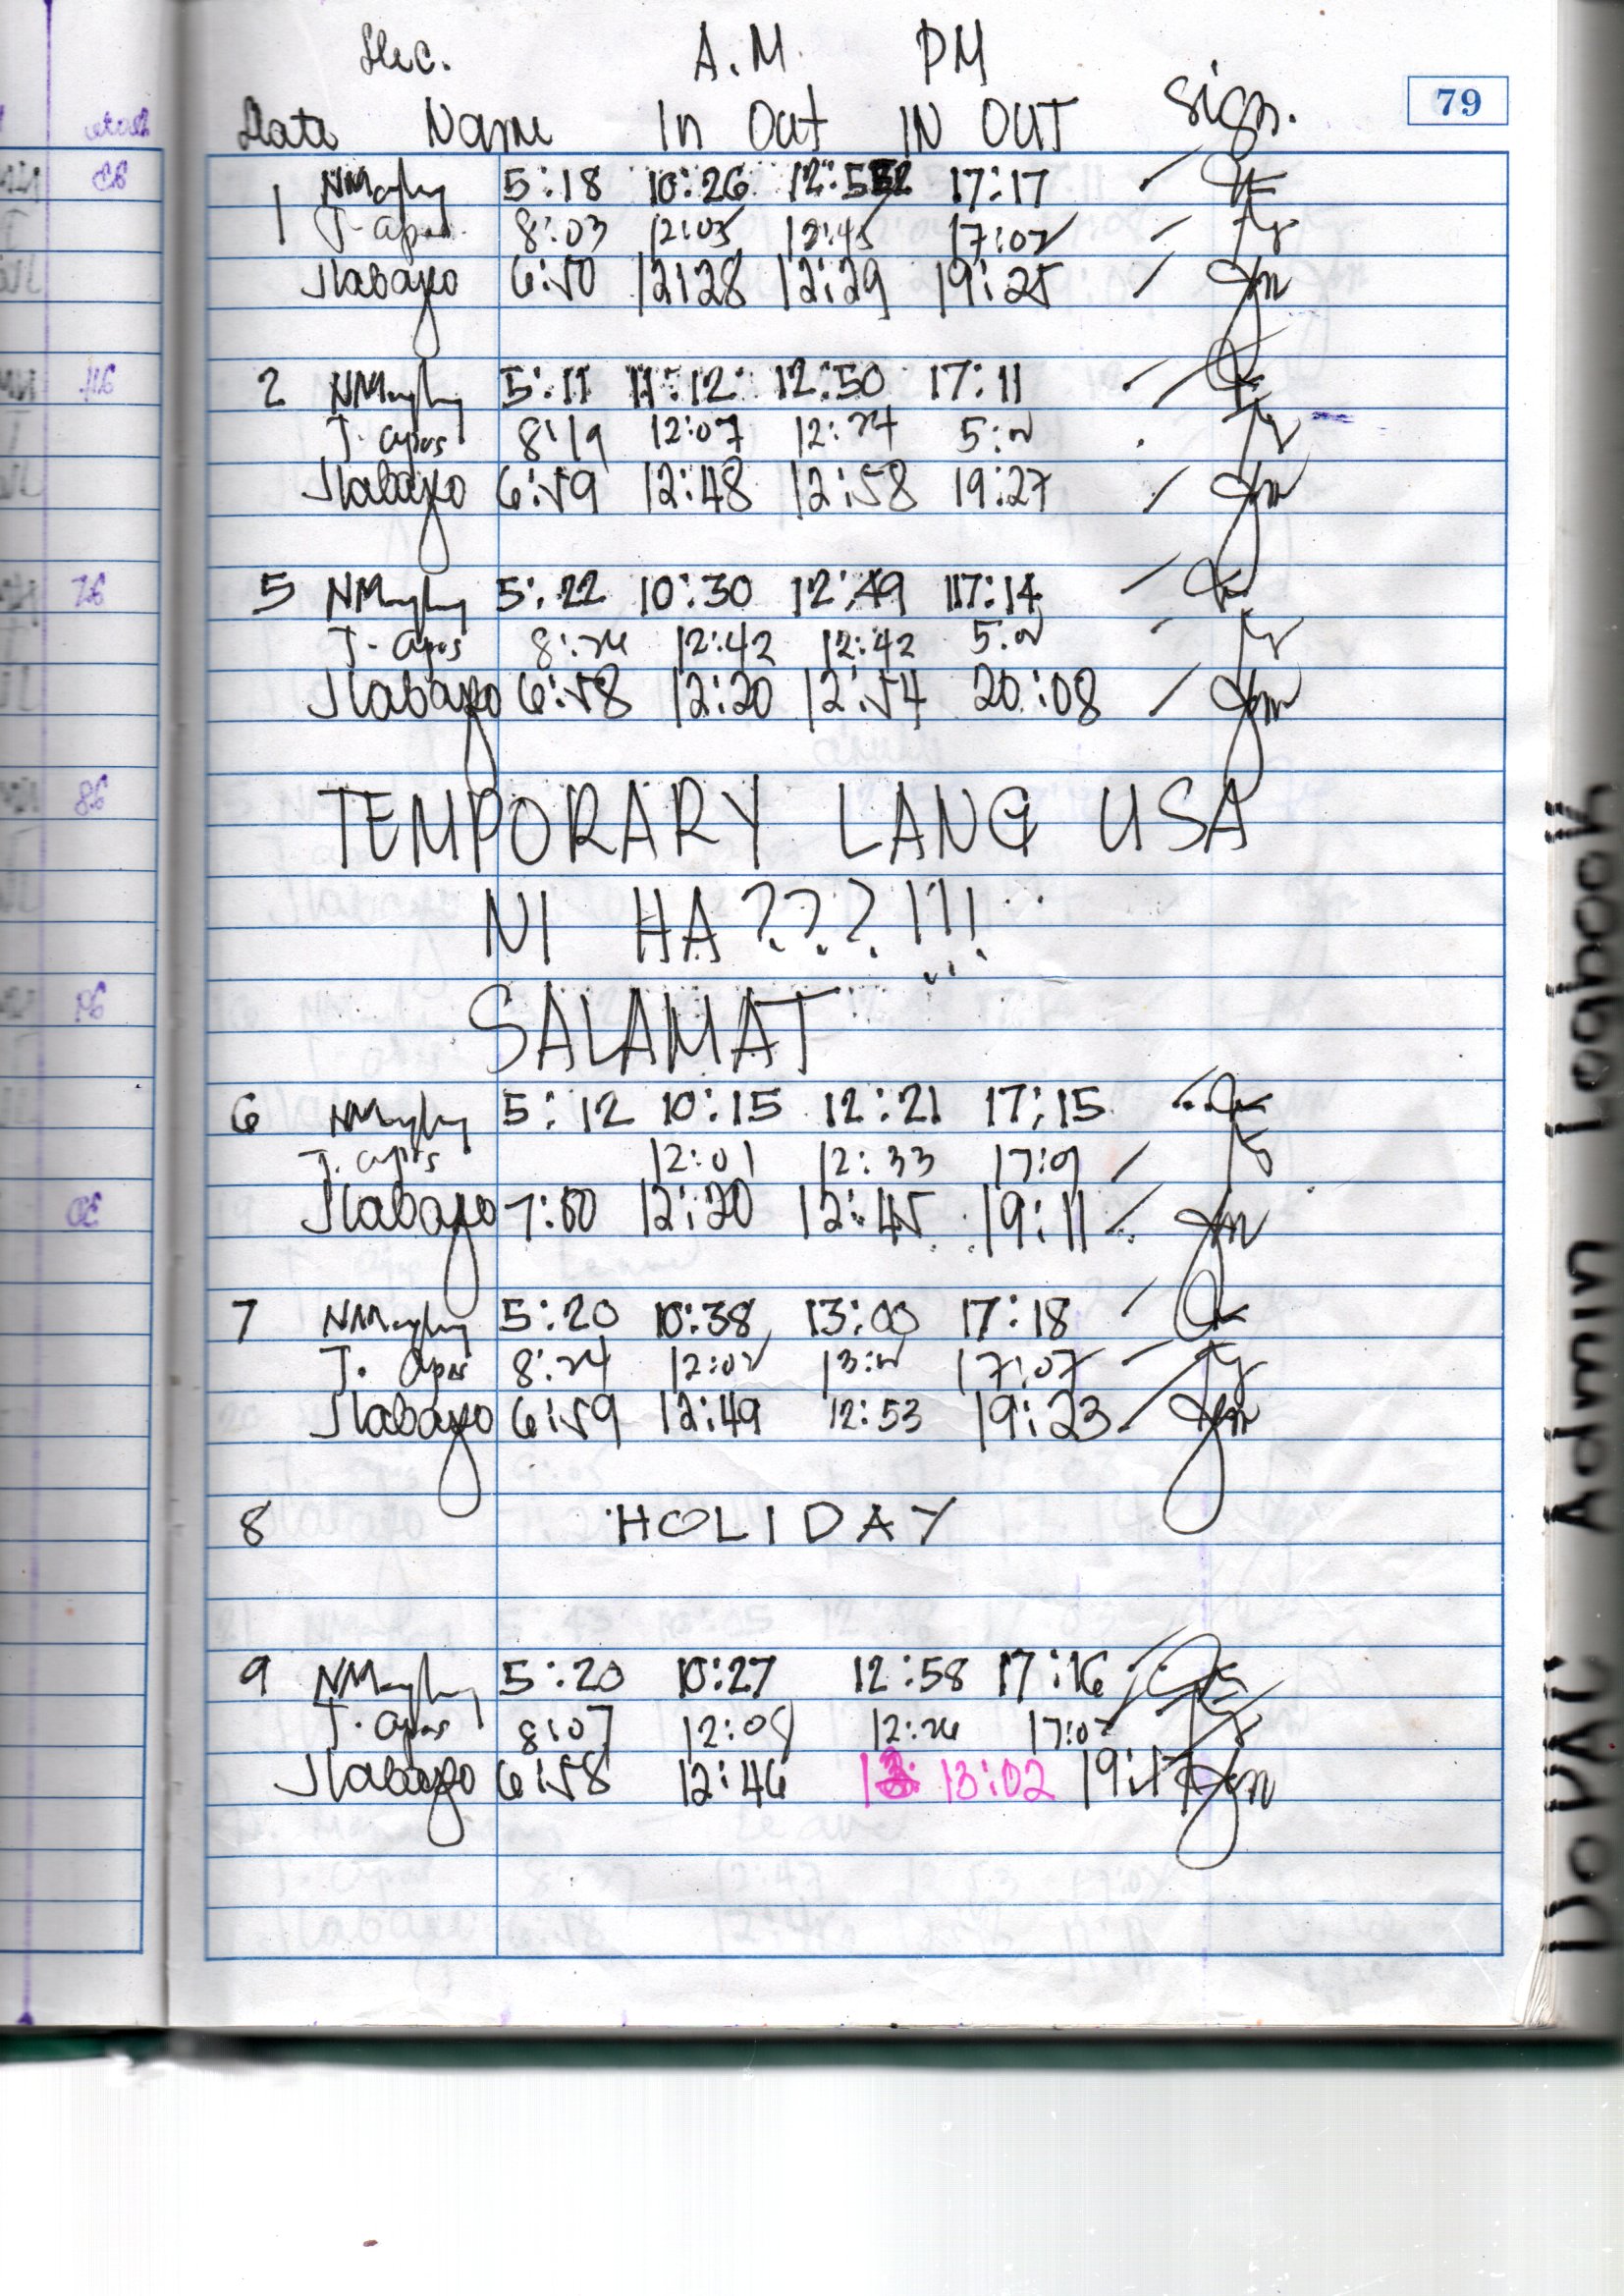 Dec. A.M. PM
79
Date Name In Out IN OUT Sign.
1 5:18 10:26 12:52 17:17
8:03 12:03 12:45 17:02
Jlabayo 6:50 12:28 12:29 19:25
2 5:11 11:12 12:50 17:11
J. apas 8:19 12:07 12:24
Jlabayo 6:59 12:48 12:58 19:27
5 5:22 10:30 12:49 17:14
J. apas 12:42 12:42
Jlabayo 6:58 12:20 12:54 20:08
TEMPORARY LANG USA
NI HA???!!!
SALAMAT
6 5:12 10:15 12:21 17:15
J. apas 12:01 12:33
Jlabayo 7:00 12:20 12:45 19:11
7 5:20 10:38 13:00 17:18
J. apas 8:24 12:02 17:07
Jlabayo 6:59 12:49 12:53 19:23
8 HOLIDAY
9 5:20 10:27 12:58 17:16
J. apas 8:07 17:02
Jlabayo 6:58 12:46 13:02 19:17
Admin Logbook